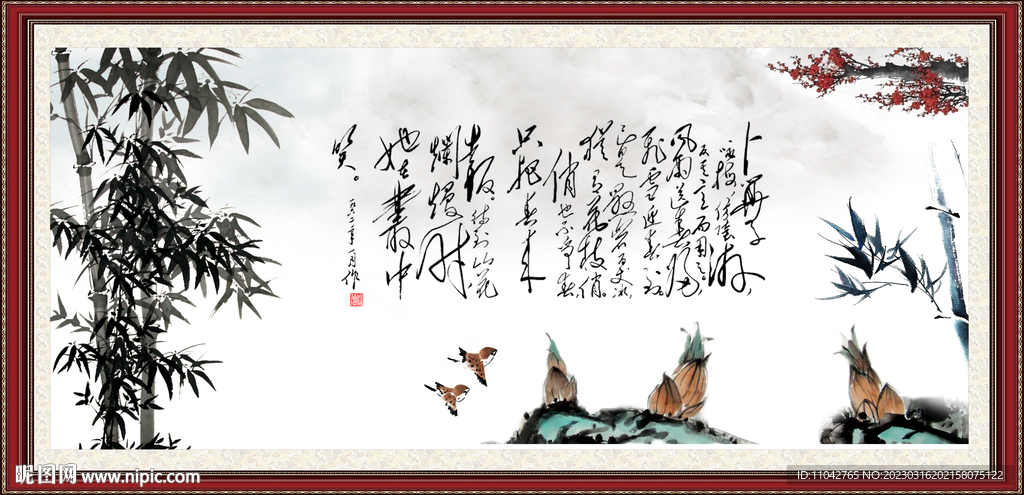 卜算子
咏梅
反其意而用之。
風雨送春歸，
飛雪迎春到
已是懸崖百丈冰，
猶有花枝俏。
俏也不爭春，
只把春來
報。待到山花
爛熳時
她在叢中
笑。
一九六二年一月作
昵图网 www.nipic.com
ID:11042765 NO:20230316202158075122